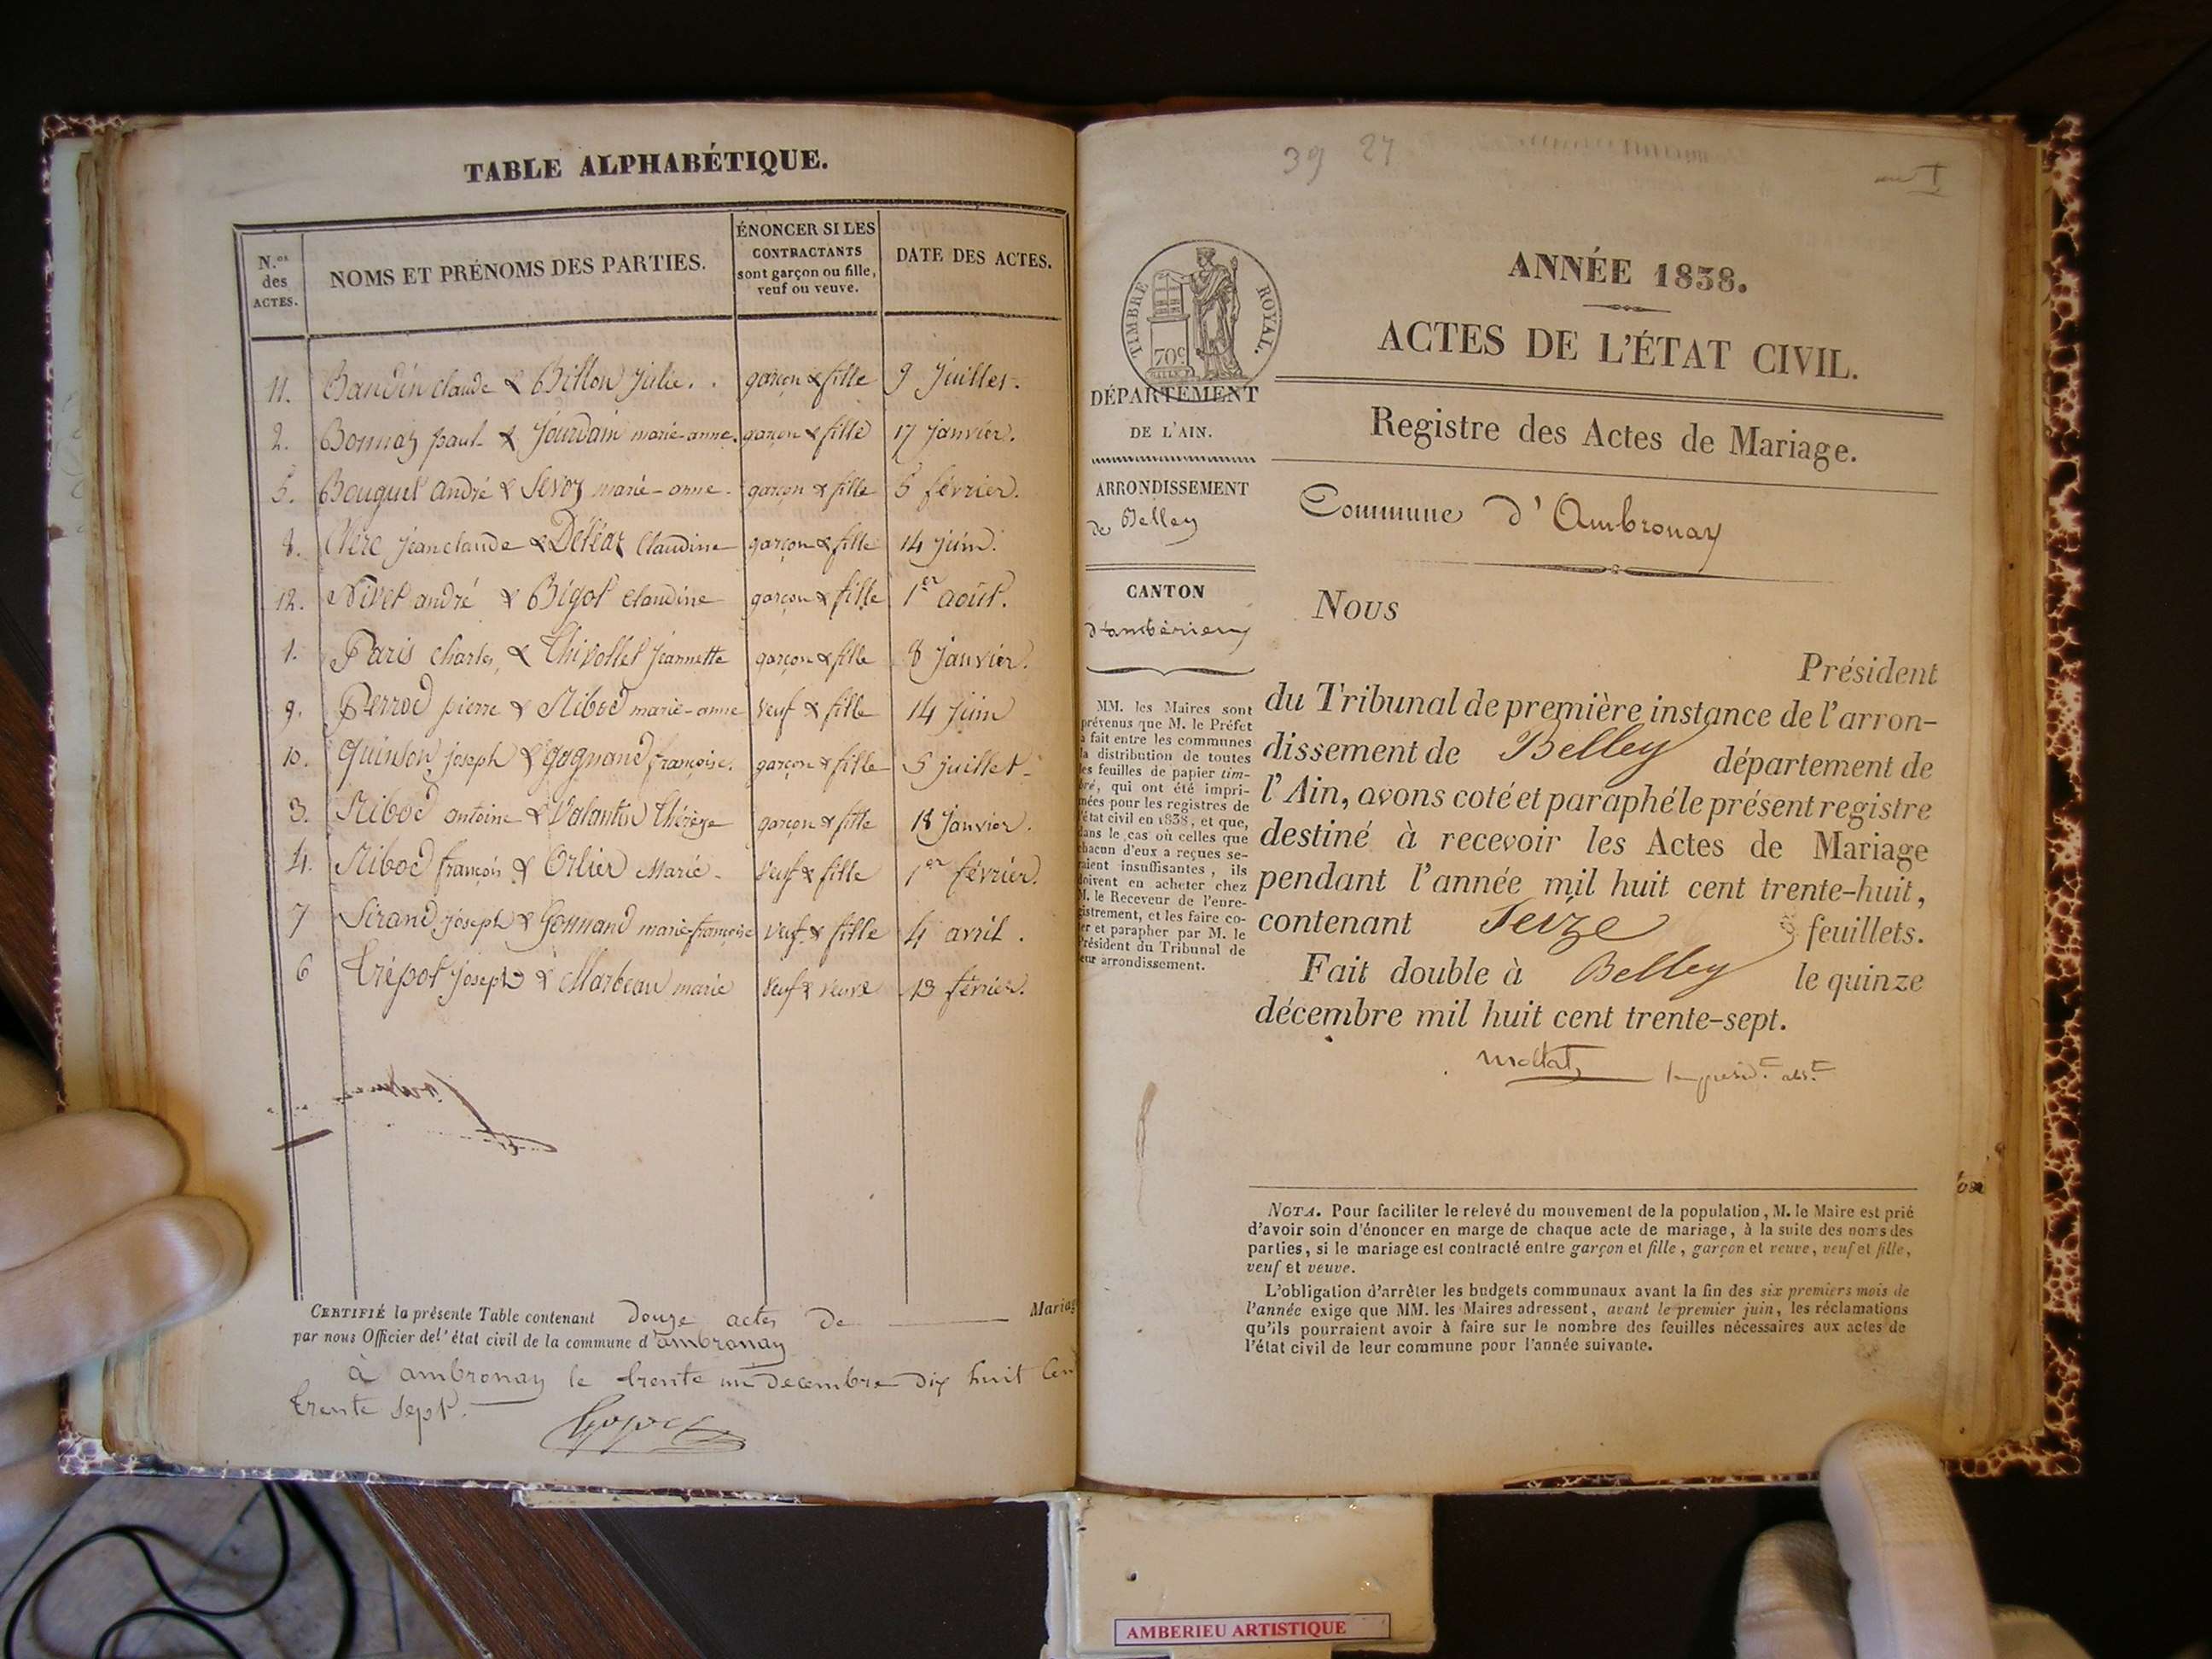 TABLE ALPHABÉTIQUE.
N.os des ACTES.
NOMS ET PRÉNOMS DES PARTIES.
ÉNONCER SI LES CONTRACTANTS sont garçon ou fille, veuf ou veuve.
DATE DES ACTES.
11. Baudin claude & Billon Julie. garçon & fille 9 Juillet.
2. Bonnaz paul & Jourdain marie-anne. garçon & fille 17 janvier.
5. Bouquet andré & Sevoz marie-anne. garçon & fille 5 février.
8. Clerc jean claude & Déléaz Claudine garçon & fille 14 juin.
12. Nivet andré & Bigot claudine garçon & fille 1er août.
1. Paris charles & Thivollet Jeannette garçon & fille 8 janvier.
9. Perrod pierre & Ribod marie-anne veuf & fille 14 juin
10. Quinson joseph & gagnand françoise. garçon & fille 5 juillet.
3. Ribod antoine & Valantin Thérèze garçon & fille 18 janvier.
4. Ribod françois & Orlier Marie. veuf & fille 1er février.
7 Sirand joseph & Gonnand marie-françoise veuf & fille 4 avril.
6 Trépot joseph & Marbeau marie veuf & veuve 13 février.
CERTIFIÉ la présente Table contenant douze actes de Mariag
par nous Officier de l'état civil de la commune d'ambronay
à ambronay le trente un decembre dix huit cen
trente sept.
39 27
TIMBRE ROYAL.
70c
ANNÉE 1838.
ACTES DE L'ÉTAT CIVIL.
DÉPARTEMENT
DE L'AIN.
ARRONDISSEMENT
de Belley
CANTON
d'ambérieu
MM. les Maires sont
prévenus que M. le Préfet
a fait entre les communes
la distribution de toutes
les feuilles de papier tim-
bré, qui ont été impri-
mées pour les registres de
l'état civil en 1838, et que,
dans le cas où celles que
chacun d'eux a reçues se-
raient insuffisantes, ils
doivent en acheter chez
M. le Receveur de l'enre-
gistrement, et les faire co-
ter et parapher par M. le
Président du Tribunal de
leur arrondissement.
Registre des Actes de Mariage.
Commune d'Ambronay
Nous
Président
du Tribunal de première instance de l'arron-
dissement de Belley département de
l'Ain, avons coté et paraphé le présent registre
destiné à recevoir les Actes de Mariage
pendant l'année mil huit cent trente-huit,
contenant Seize feuillets.
Fait double à Belley le quinze
décembre mil huit cent trente-sept.
NOTA. Pour faciliter le relevé du mouvement de la population, M. le Maire est prié
d'avoir soin d'énoncer en marge de chaque acte de mariage, à la suite des noms des
parties, si le mariage est contracté entre garçon et fille, garçon et veuve, veuf et fille,
veuf et veuve.
L'obligation d'arrêter les budgets communaux avant la fin des six premiers mois de
l'année exige que MM. les Maires adressent, avant le premier juin, les réclamations
qu'ils pourraient avoir à faire sur le nombre des feuilles nécessaires aux actes de
l'état civil de leur commune pour l'année suivante.
AMBERIEU ARTISTIQUE